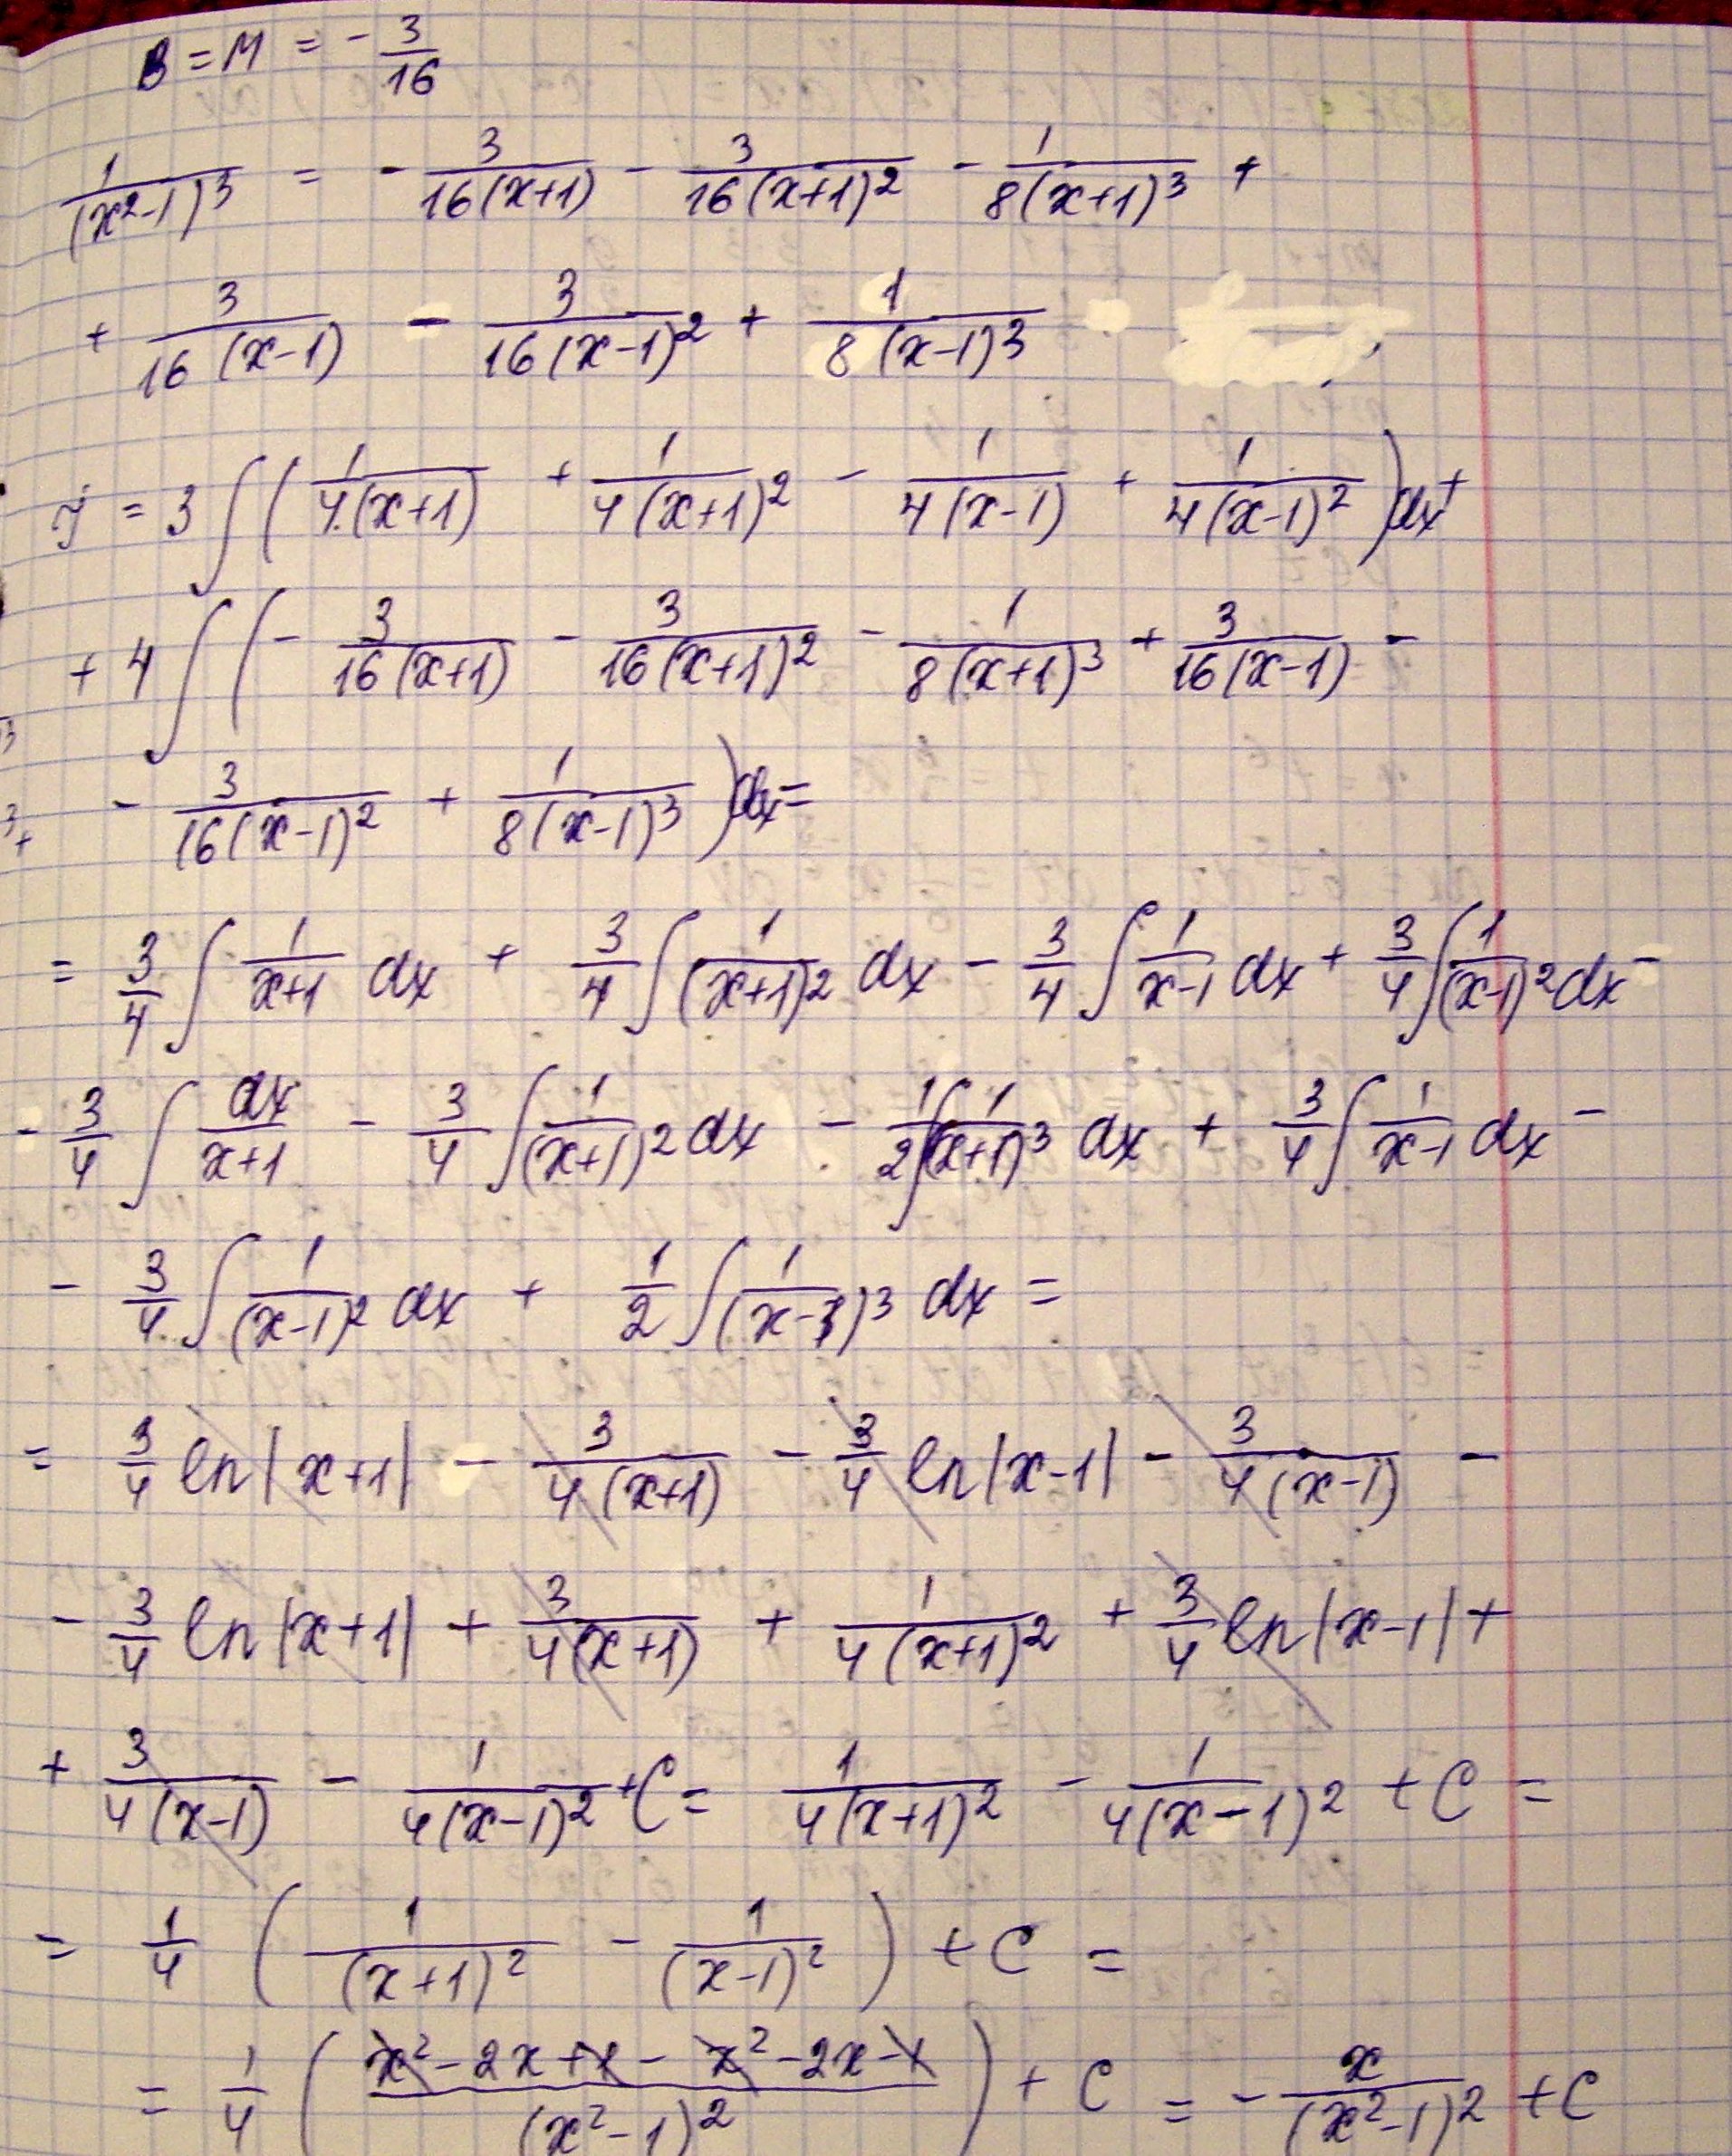 B = M = - 3/16
1/(x²-1)³ = - 3/16(x+1) - 3/16(x+1)² - 1/8(x+1)³ +
+ 3/16(x-1) - 3/16(x-1)² + 1/8(x-1)³
J = 3∫(1/4.(x+1) + 1/4(x+1)² - 1/4(x-1) + 1/4(x-1)²)dx +
+ 4∫(- 3/16(x+1) - 3/16(x+1)² - 1/8(x+1)³ + 3/16(x-1) -
- 3/16(x-1)² + 1/8(x-1)³)dx =
= 3/4 ∫ 1/x+1 dx + 3/4 ∫ 1/(x+1)² dx - 3/4 ∫ 1/x-1 dx + 3/4 ∫ 1/(x-1)² dx -
- 3/4 ∫ dx/x+1 - 3/4 ∫ 1/(x+1)² dx - 1/2 ∫ 1/(x+1)³ dx + 3/4 ∫ 1/x-1 dx -
- 3/4 ∫ 1/(x-1)² dx + 1/2 ∫ 1/(x-1)³ dx =
= 3/4 ln|x+1| - 3/4(x+1) - 3/4 ln|x-1| - 3/4(x-1) -
- 3/4 ln|x+1| + 3/4(x+1) + 1/4(x+1)² + 3/4 ln|x-1| +
+ 3/4(x-1) - 1/4(x-1)² + C = 1/4(x+1)² - 1/4(x-1)² + C =
= 1/4 (1/(x+1)² - 1/(x-1)²) + C =
= 1/4 (x²-2x+1-x²-2x-1/(x²-1)²) + C = - x/(x²-1)² + C